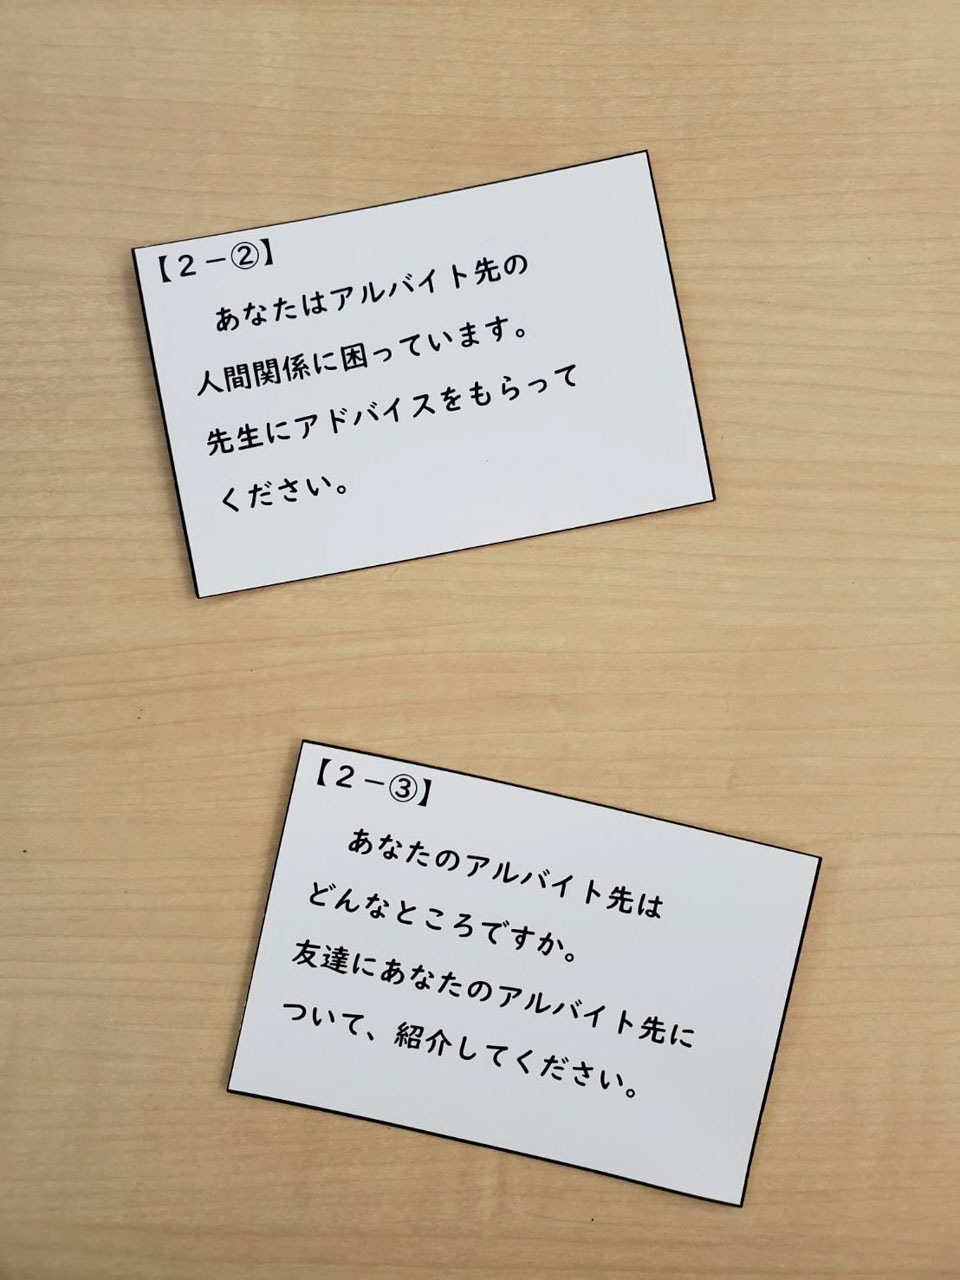 【２－②】
あなたはアルバイト先の
人間関係に困っています。
先生にアドバイスをもらって
ください。
【２－③】
あなたのアルバイト先は
どんなところですか。
友達にあなたのアルバイト先に
ついて、紹介してください。